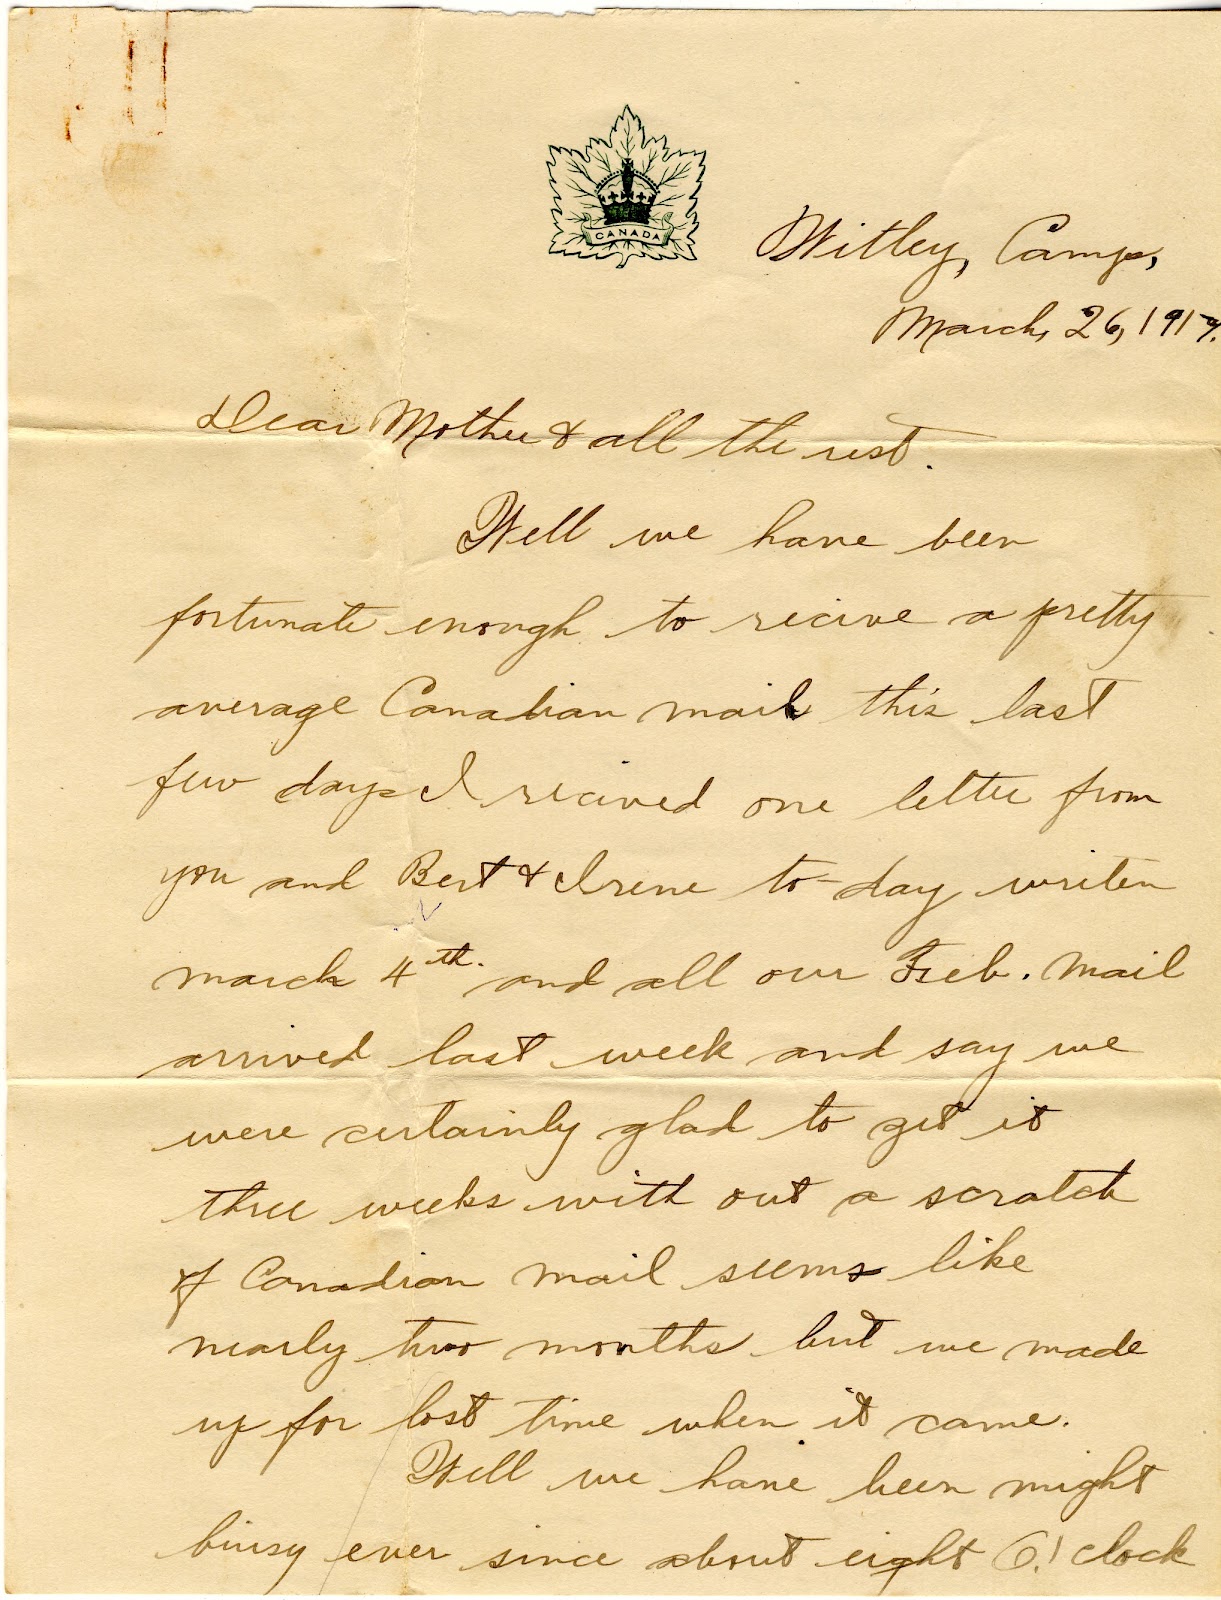 CANADA
Witley, Camp,
March, 26, 1917.
Dear Mother & all the rest.
Well we have been
fortunate enough to recive a pretty
average Canadian mail this last
few days I recived one letter from
you and Bert & Irene to-day writen
march 4th. and all our Feb. mail
arrived last week and say we
were certainly glad to get it
three weeks with out a scratch
of Canadian mail seems like
nearly two months but we made
up for lost time when it came.
Well we have been might
buisy ever since about eight O! clock